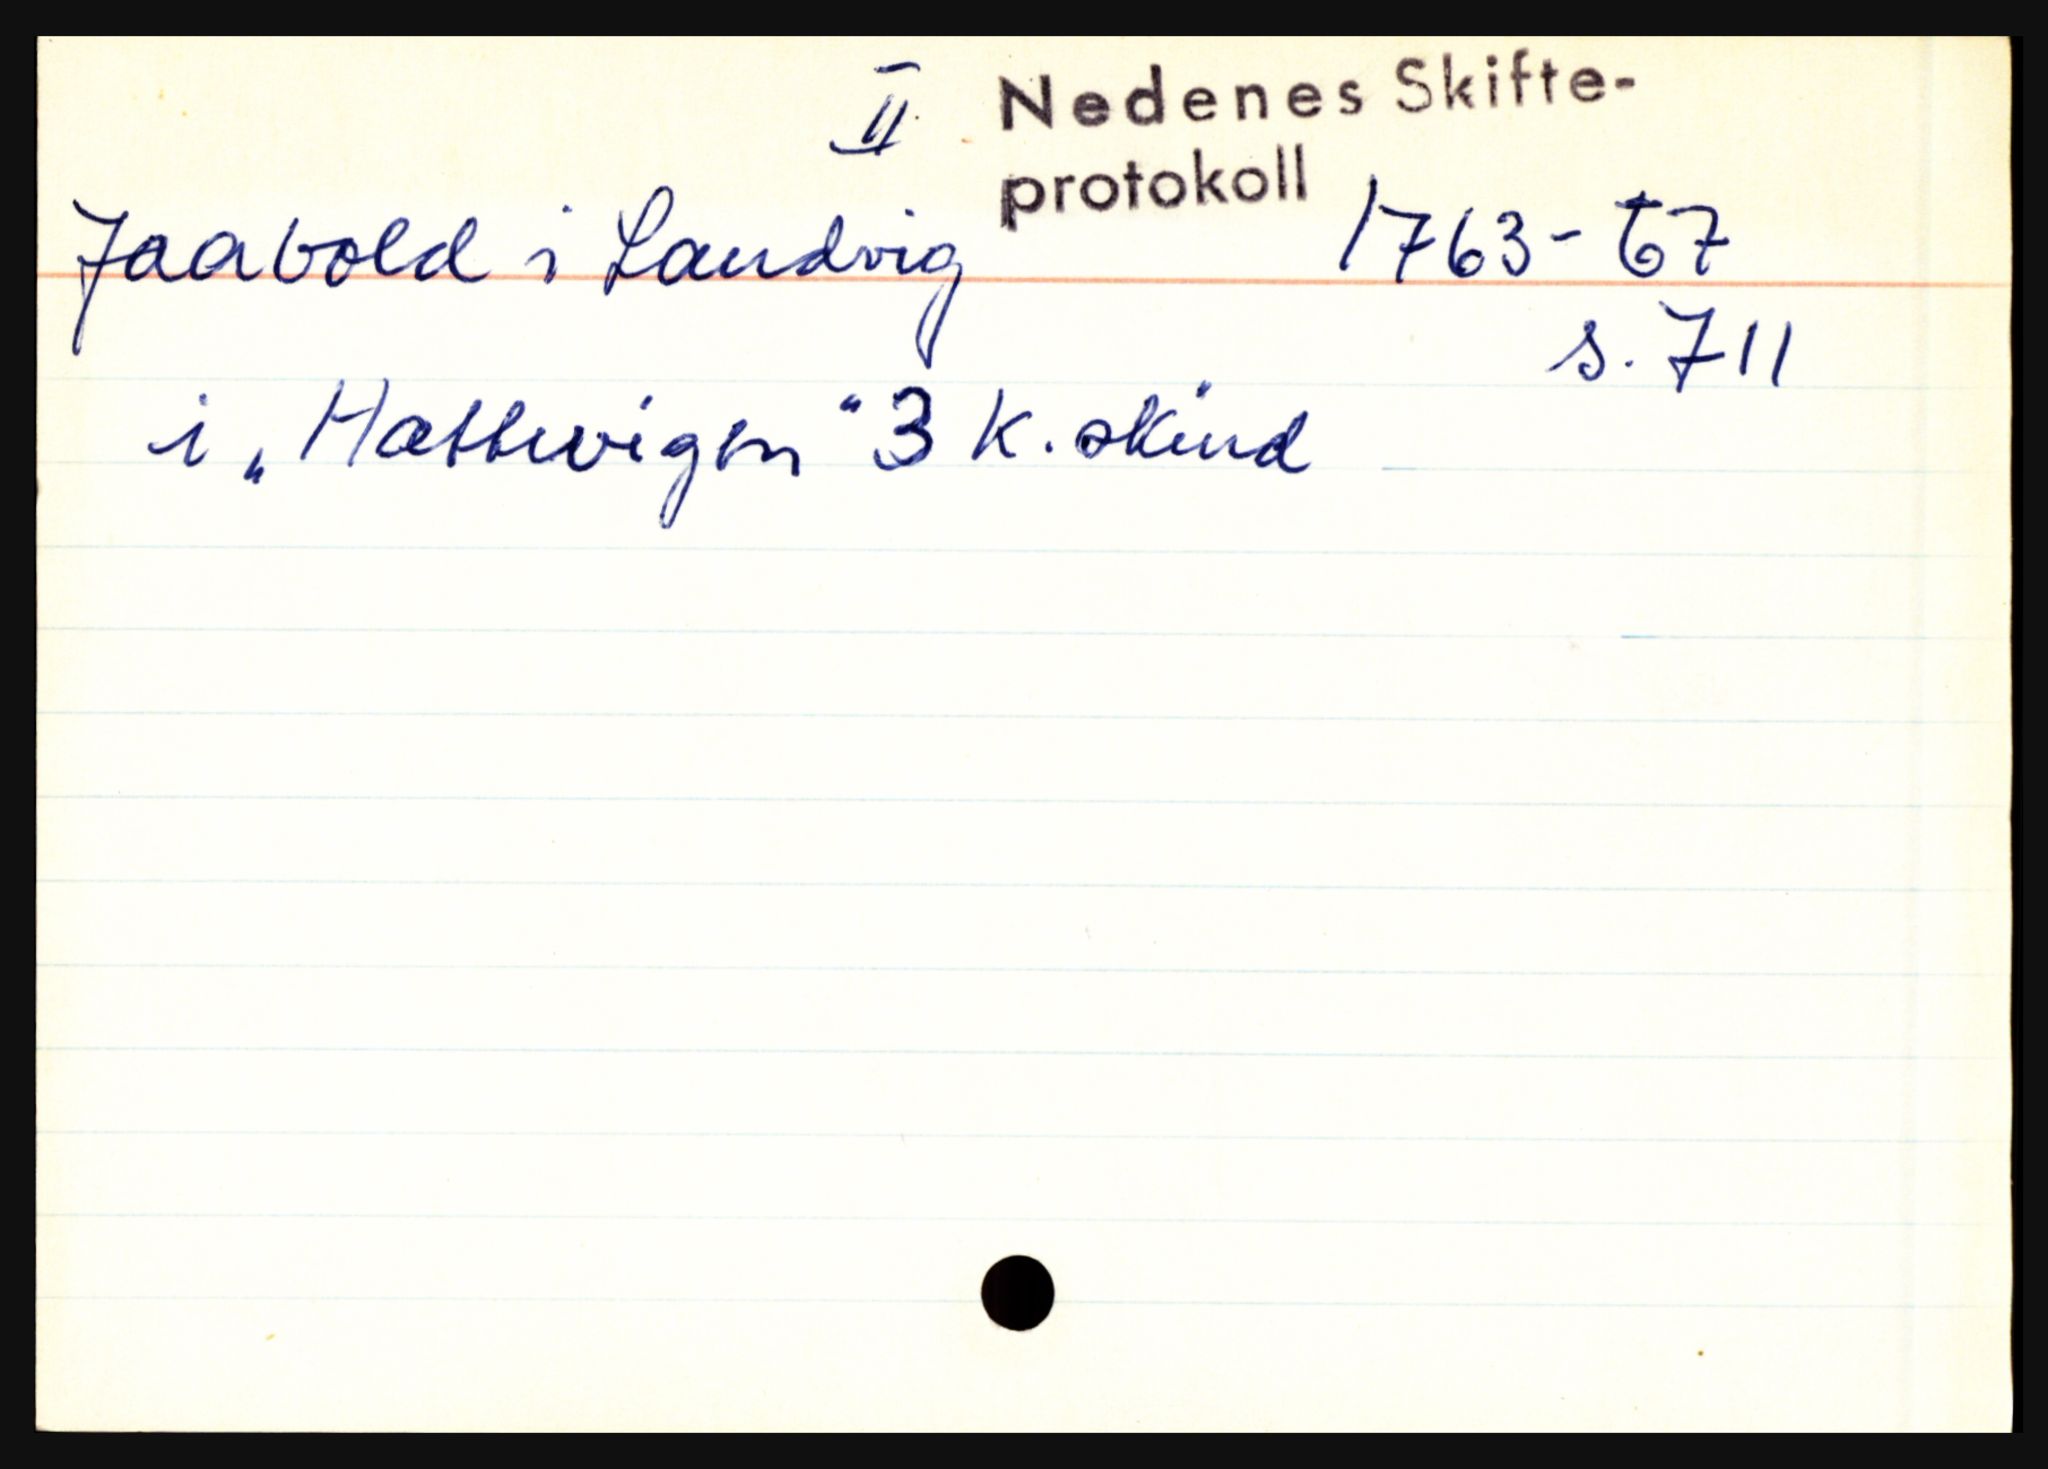 II Nedenes Skifte-
protokoll
Jaabold i Landvig 1763-67
s. 711
i „Hathwigen" 3 k. skind